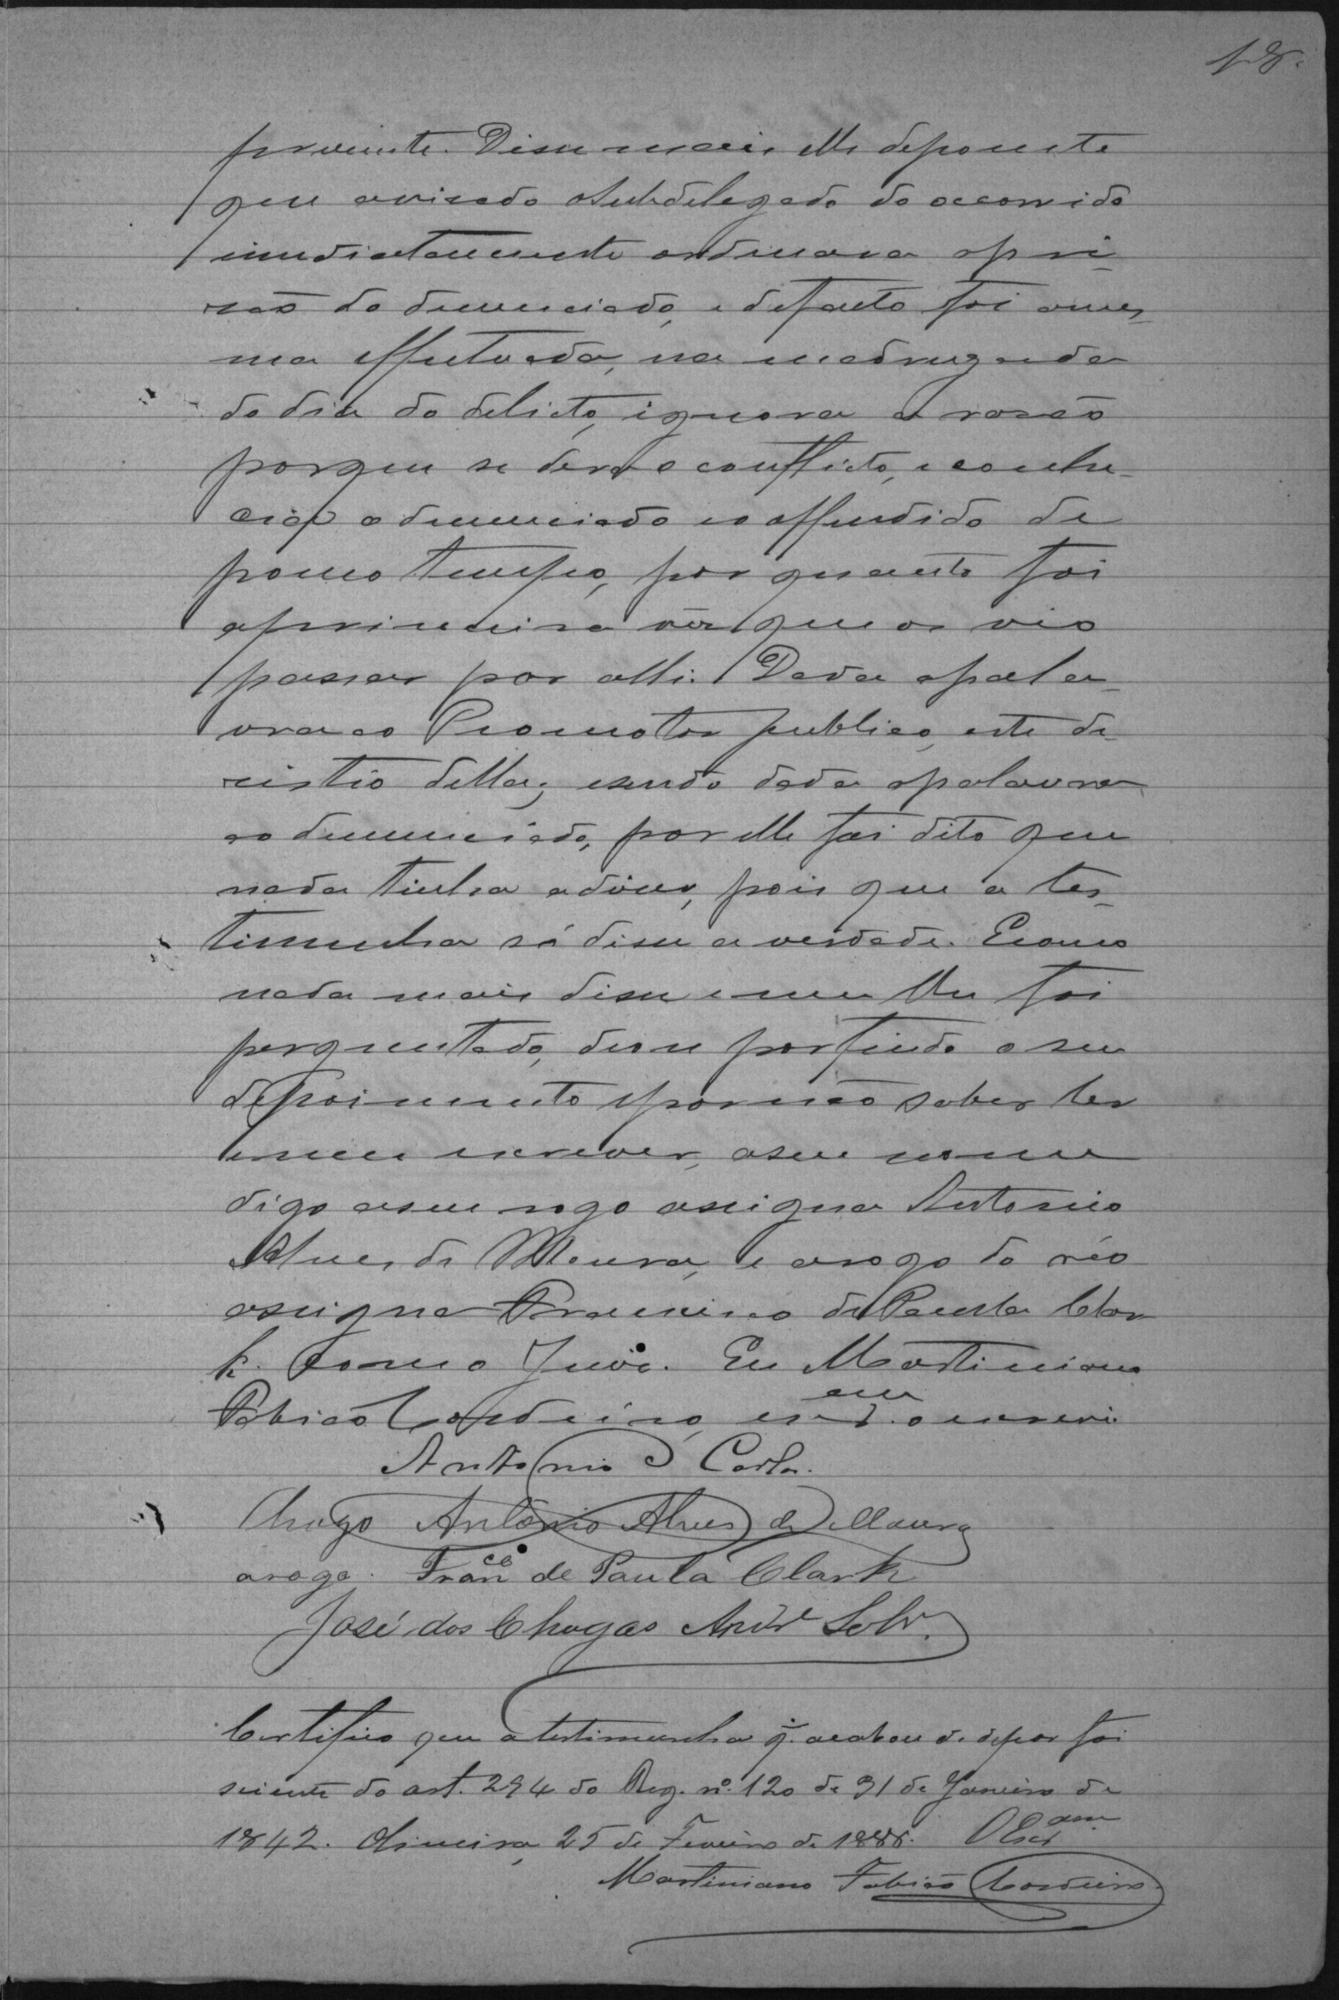 18.
proviniente. Disse mais elle depoente
que avisado o Subdelegado do occorrido
immediatamente ordenara a pri-
são do denunciado, e defacto foi a mes-
ma effetuada, na madrugada
do dia do delicto, ignora a rasão
porque se dera o conflicto, e conhe-
cia o denunciado e o offendido de
pouco tempo, por quanto foi
a primeira vez que os vio
passar por alli. Dada a pala-
vra ao Promotor publico, este de-
cistio della; e sendo dada a palavra
ao denunciado, por elle foi dito que
nada tinha a diser, pois que a tes-
timunha só disse a verdade. E como
nada mais disse e nem lhe foi
perguntado, deo-se por findo o seu
depoimento e por não saber ler
e nem escrever, a seu nome
digo a seu rogo assigna Antonio
Alves de Moura, e a rogo do réo
assigna Francisco de Paula Clar-
k. Como o Juiz. Eu Martiniano
Fabião Cordeiro, escram o escrevi
Antonio Carlos.
Antônio Alves de Moura
a rogo. Franco de Paula Clark
José das Chagas Andre Sobr.
Certifico que a testimunha q. acabou de depor foi
sciente do art. 294 do Reg. nº 120 de 31 de Janeiro de
1842. Oliveira, 25 de Fevereiro de 1888. O Escram
Martiniano Fabião Cordeiro